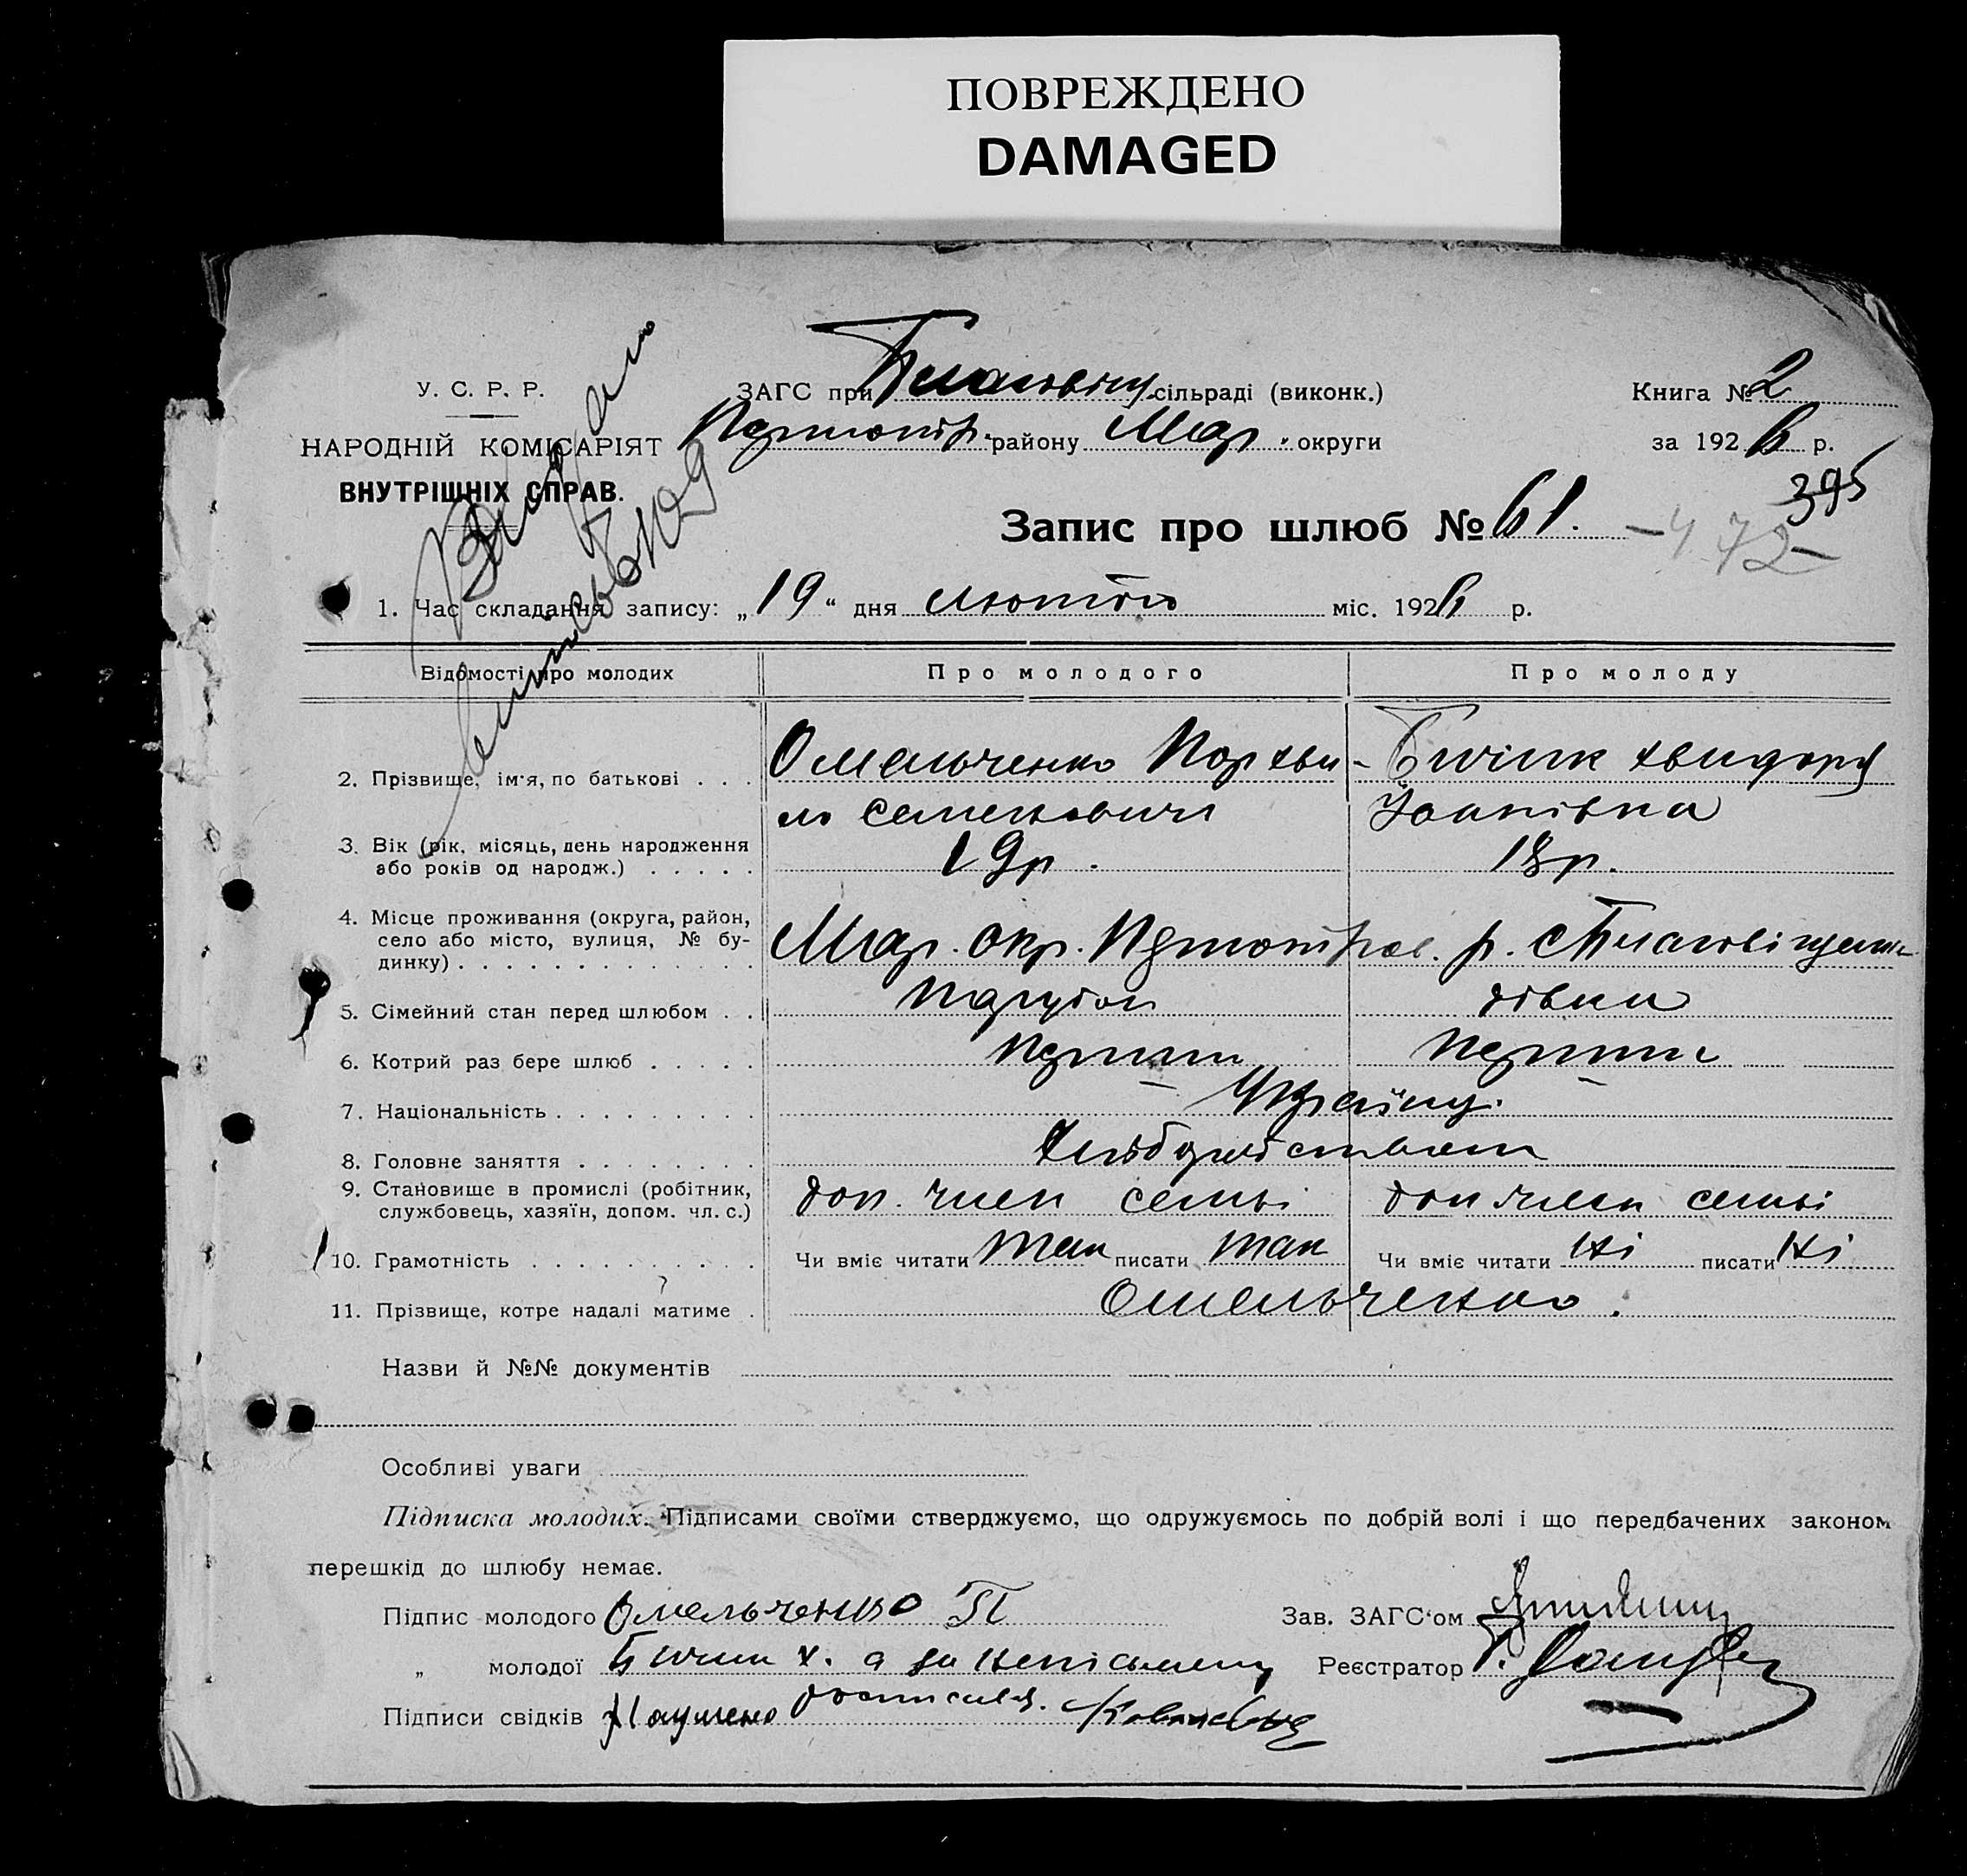 ПОВРЕЖДЕНО
DAMAGED
У. С. Р. Р.
НАРОДНІЙ КОМІСАРІЯТ
ВНУТРІШНІХ СПРАВ.
ЗАГС при сільраді (виконк.)
району Мар. округи
Книга № 2
за 1926 р.
395
Запис про шлюб № 61. -472-
1. Час складання запису: „19“ дня лютого міс. 1926 р.
Відомості про молодих Про молодого Про молоду
2. Прізвище, ім'я, по батькові . . . Омельченко Порхви- Бичик Хвидора
ло Семенович Іванівна
3. Вік (рік, місяць, день народження
або років од народж.) . . . . . 19р. 18р.
4. Місце проживання (округа, район,
село або місто, вулиця, № бу-
динку) . . . . . . . . . . . . . Мар. окр. р. с.
5. Сімейний стан перед шлюбом . . Парубок дівка
6. Котрий раз бере шлюб . . . . . Перший Перший
7. Національність . . . . . . . . Українці
8. Головне заняття . . . . . . . . Хліборобством
9. Становище в промислі (робітник,
службовець, хазяїн, допом. чл. с.) доп. член семьі доп член семьі
10. Грамотність . . . . . . . . . . Чи вміє читати так писати так Чи вміє читати ні писати ні
11. Прізвище, котре надалі матиме . Омельченко.
Назви й №№ документів
Особливі уваги
Підписка молодих. Підписами своїми стверджуємо, що одружуємось по добрій волі і що передбачених законом
перешкід до шлюбу немає.
Підпис молодого Омельченко П Зав. ЗАГС'ом
„ молодої Бичик Х. а за неписьмену Реєстратор
Підписи свідків